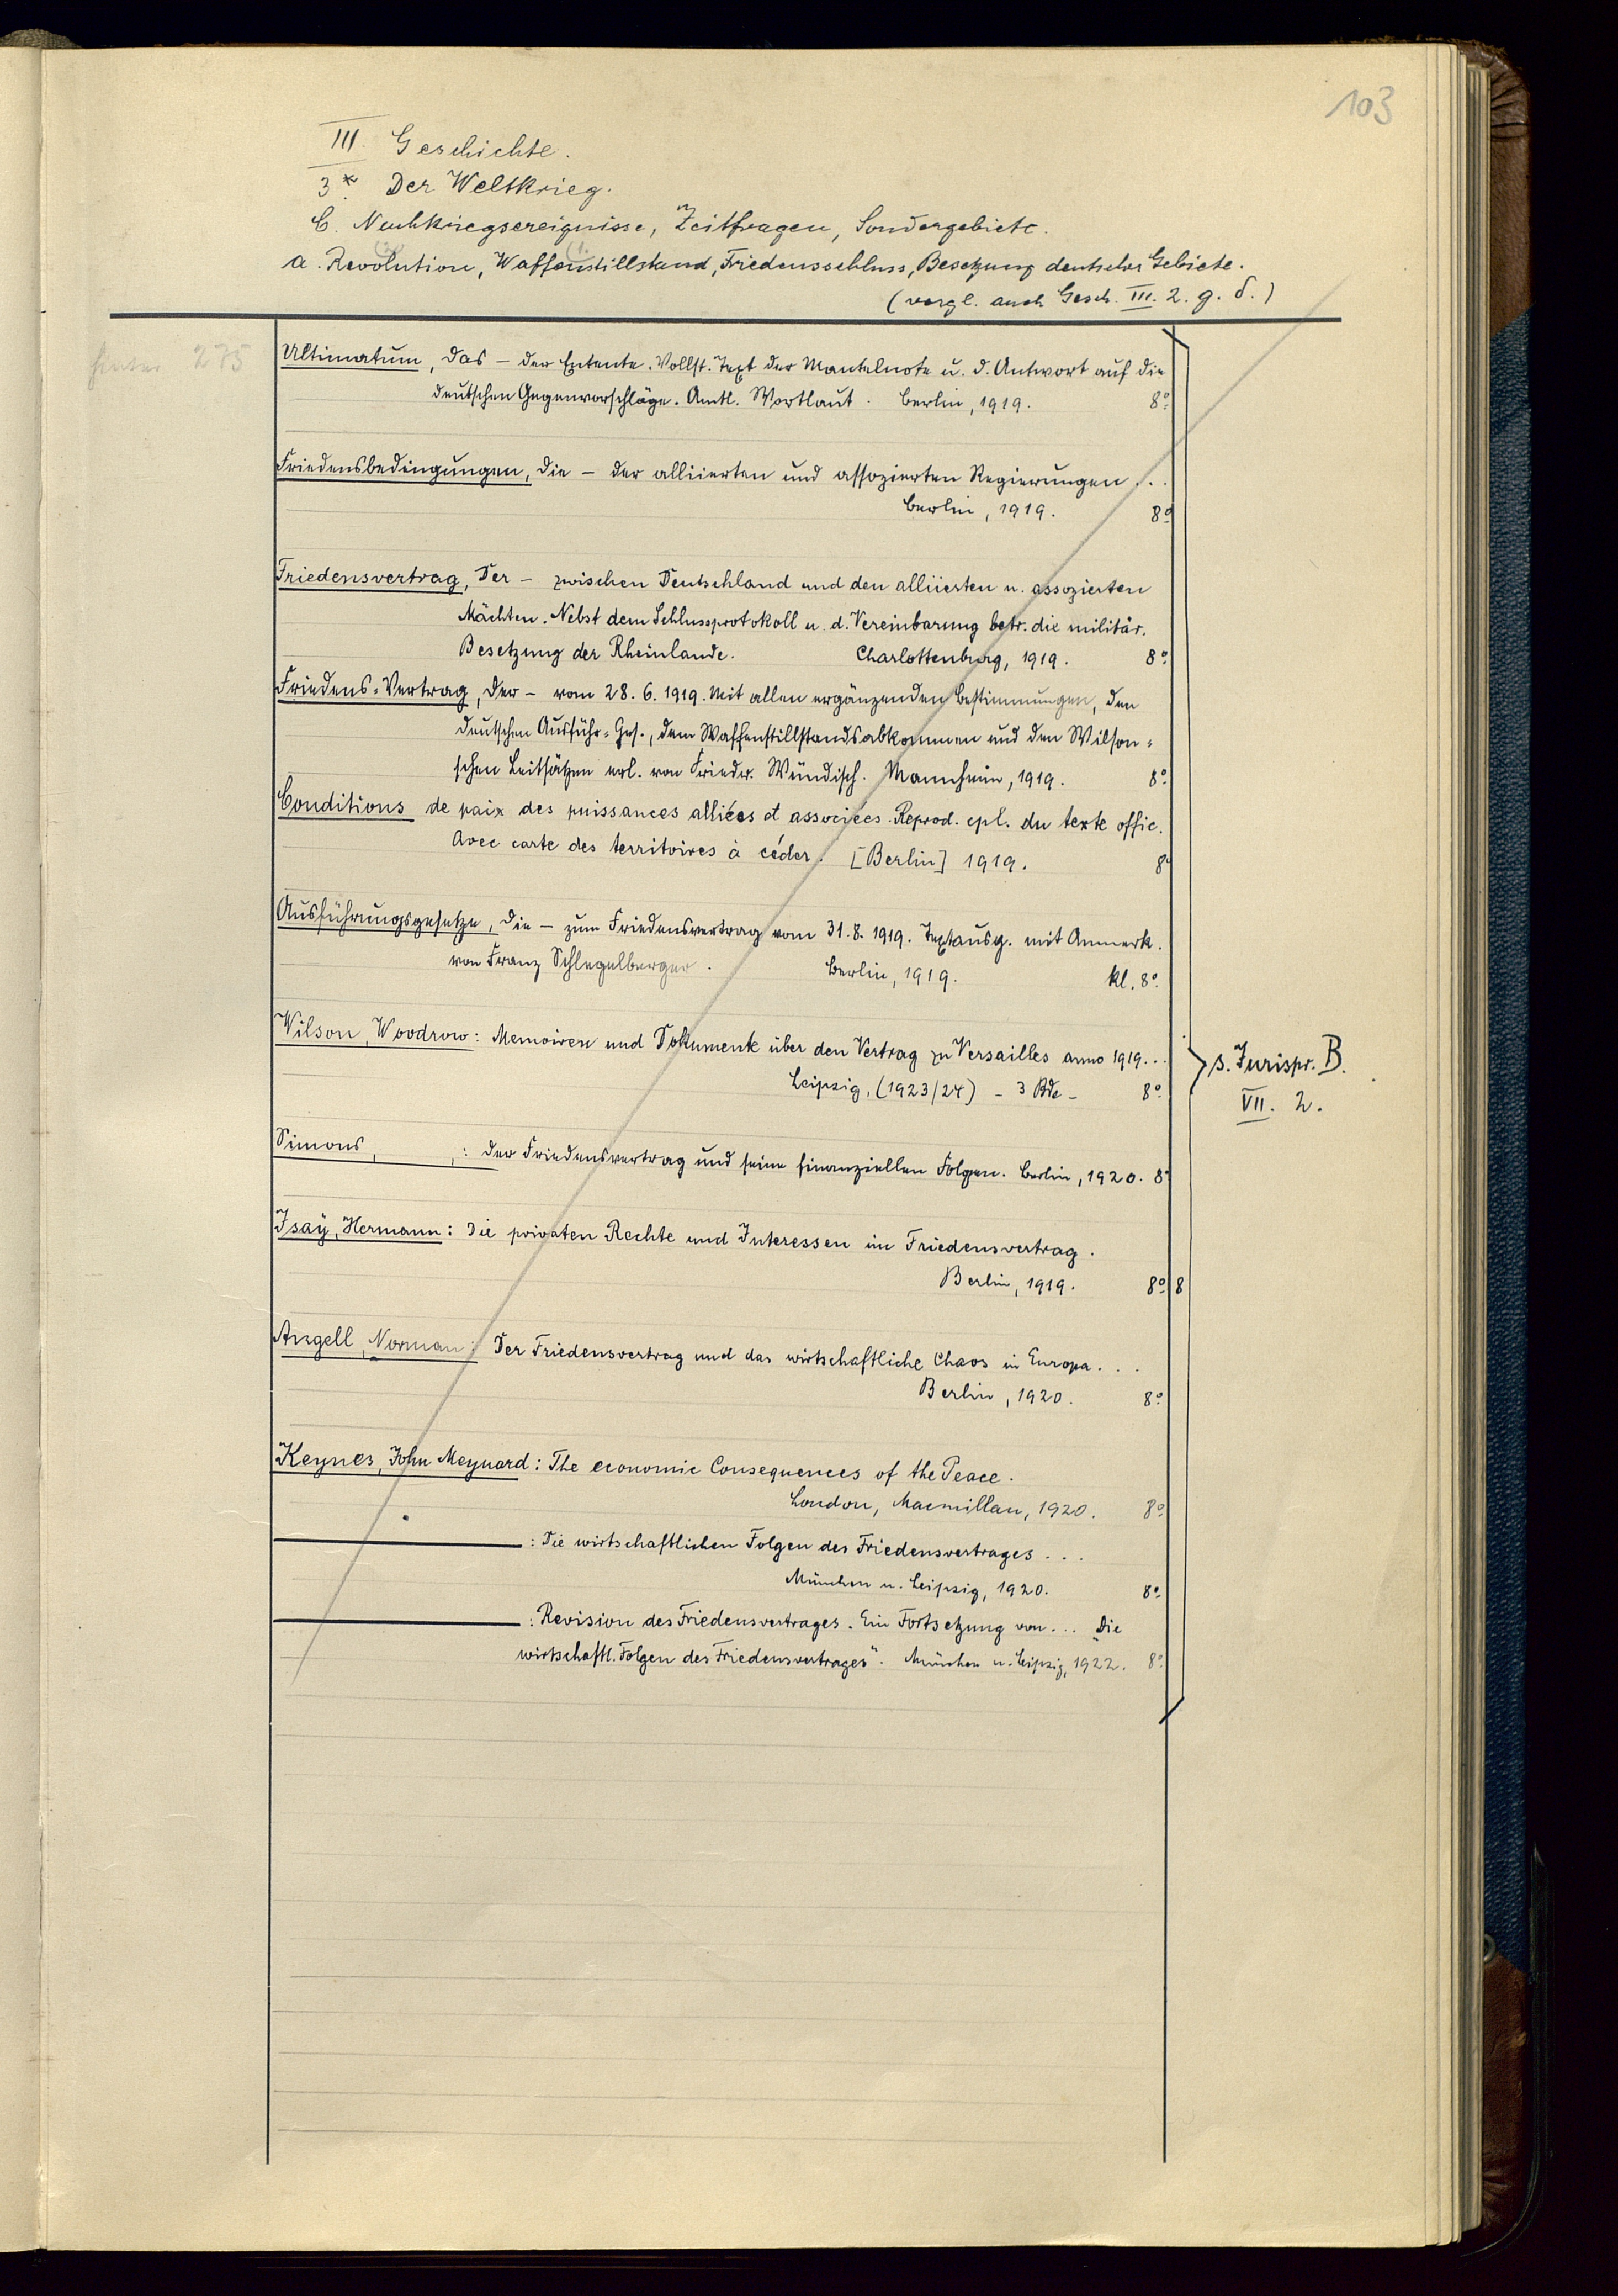 103
III. Geschichte.
3* Der Weltkrieg.
C. Nachkriegsereignisse, Zeitfragen, Sondergebiete.
a. Revolution, Waffenstillstand, Friedensschluss, Besetzung deutscher Gebiete.
(vergl. auch Gesch. III. 2. g. δ.)
hinter 275
Ultimatum, das – der Entente. Vollst. Text der Mantelnote u. d. Antwort auf die
deutschen Gegenvorschläge. Amtl. Wortlaut. Berlin, 1919. 8°.
Friedensbedingungen, die – der alliierten und assozierten Regierungen...
Berlin, 1919. 8°
Friedensvertrag, Der – zwischen Deutschland und den alliierten u. assozierten
Mächten. Nebst dem Schlussprotokoll u. d. Vereinbarung betr. die militär.
Besetzung der Rheinlande. Charlottenburg, 1919. 8°.
Friedens=Vertrag, der – vom 28. 6. 1919. Mit allen ergänzenden Bestimmungen, den
deutschen Ausführ=Ges., dem Waffenstillstandsabkommen und den Wilson=
schen Leitsätzen erl. von Friedr. Wündisch. Mannheim, 1919. 8°.
Conditions de paix des puissances alliées et associées. Reprod. cpl. du texte offic.
Avec carte des territoires à céder. [Berlin] 1919. 8°
Ausführungsgesetze, die – zum Friedensvertrag vom 31. 8. 1919. Textausg. mit Anmerk.
von Franz Schlegelberger. Berlin, 1919. kl. 8°.
Wilson, Woodrow: Memoiren und Dokumente über den Vertrag zu Versailles anno 1919...
Leipzig, (1923/24) – 3 Bde – 8°.
s. Jurispr. B.
VII. 2.
Simons, : der Friedensvertrag und seine finanziellen Folgen. Berlin, 1920. 8°
Isaÿ, Hermann: Die privaten Rechte und Interessen im Friedensvertrag.
Berlin, 1919. 8°. 8
Angell, Norman: Der Friedensvertrag und das wirtschaftliche Chaos in Europa...
Berlin, 1920. 8°.
Keynes, John Meynard: The economic Consequences of the Peace.
London, Macmillan, 1920. 8°.
: Die wirtschaftlichen Folgen des Friedensvertrages...
München u. Leipzig, 1920. 8°.
: Revision des Friedensvertrages. Ein Fortsetzung von... „Die
wirtschaftl. Folgen des Friedensvertrages". München u. Leipzig, 1922. 8°.